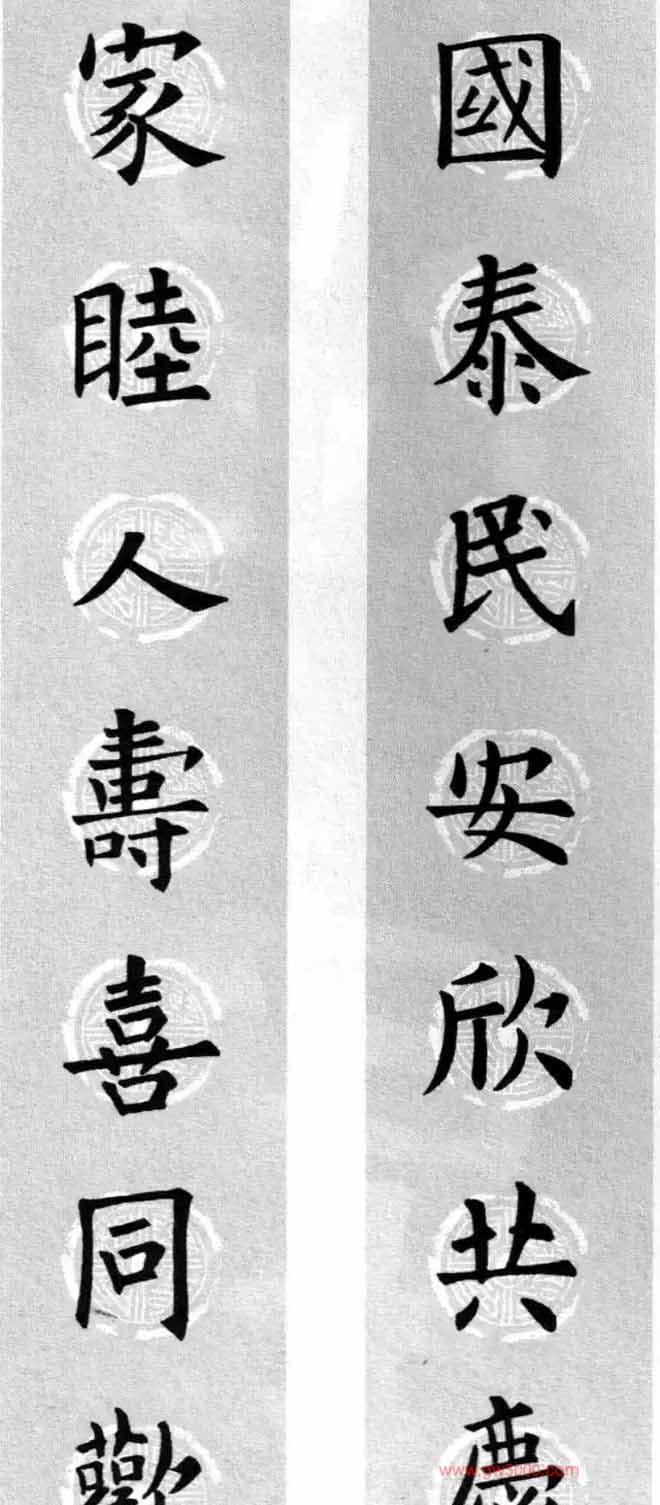 國泰民安欣共慶
家睦人壽喜同歡